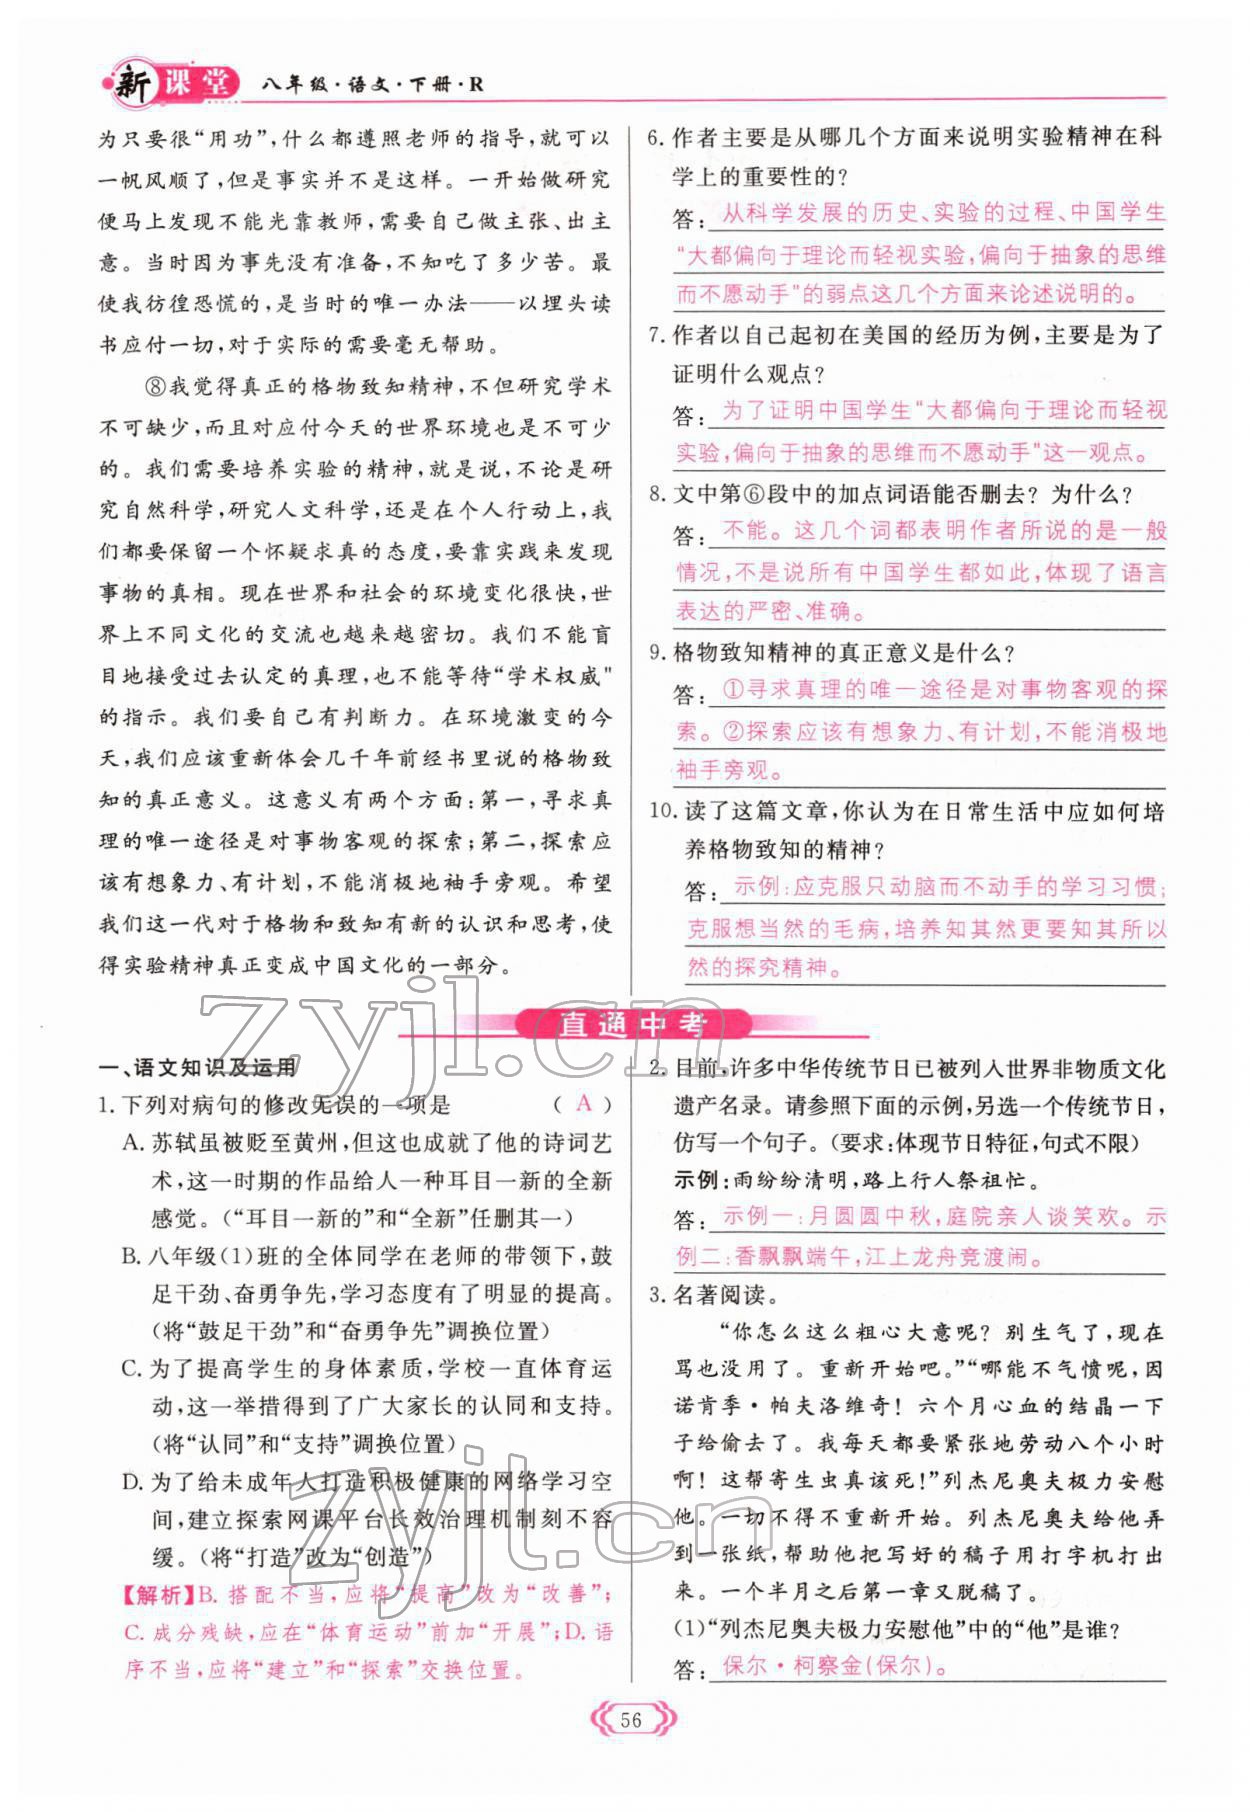 新课堂 八年级·语文·下册·R
为只要很“用功”,什么都遵照老师的指导,就可以
一帆风顺了,但是事实并不是这样。一开始做研究
便马上发现不能光靠教师,需要自己做主张、出主
意。当时因为事先没有准备,不知吃了多少苦。最
使我彷徨恐慌的,是当时的唯一办法——以埋头读
书应付一切,对于实际的需要毫无帮助。
⑧我觉得真正的格物致知精神,不但研究学术
不可缺少,而且对应付今天的世界环境也是不可少
的。我们需要培养实验的精神,就是说,不论是研
究自然科学,研究人文科学,还是在个人行动上,我
们都要保留一个怀疑求真的态度,要靠实践来发现
事物的真相。现在世界和社会的环境变化很快,世
界上不同文化的交流也越来越密切。我们不能盲
目地接受过去认定的真理,也不能等待“学术权威”
的指示。我们要自己有判断力。在环境激变的今
天,我们应该重新体会几千年前经书里说的格物致
知的真正意义。这意义有两个方面:第一,寻求真
理的唯一途径是对事物客观的探索;第二,探索应
该有想象力、有计划,不能消极地袖手旁观。希望
我们这一代对于格物和致知有新的认识和思考,使
得实验精神真正变成中国文化的一部分。
6. 作者主要是从哪几个方面来说明实验精神在科
学上的重要性的?
答:从科学发展的历史、实验的过程、中国学生
“大都偏向于理论而轻视实验,偏向于抽象的思维
而不愿动手”的弱点这几个方面来论述说明的。
7. 作者以自己起初在美国的经历为例,主要是为了
证明什么观点?
答:为了证明中国学生“大都偏向于理论而轻视
实验,偏向于抽象的思维而不愿动手”这一观点。
8. 文中第⑥段中的加点词语能否删去?为什么?
答:不能。这几个词都表明作者所说的是一般
情况,不是说所有中国学生都如此,体现了语言
表达的严密、准确。
9. 格物致知精神的真正意义是什么?
答:①寻求真理的唯一途径是对事物客观的探
索。②探索应该有想象力、有计划,不能消极地
袖手旁观。
10. 读了这篇文章,你认为在日常生活中应如何培
养格物致知的精神?
答:示例:应克服只动脑而不动手的学习习惯;
克服想当然的毛病,培养知其然更要知其所以
然的探究精神。
直通中考
一、语文知识及运用
1. 下列对病句的修改无误的一项是 ( A )
A. 苏轼虽被贬至黄州,但这也成就了他的诗词艺
术,这一时期的作品给人一种耳目一新的全新
感觉。(“耳目一新的”和“全新”任删其一)
B. 八年级(1)班的全体同学在老师的带领下,鼓
足干劲、奋勇争先,学习态度有了明显的提高。
(将“鼓足干劲”和“奋勇争先”调换位置)
C. 为了提高学生的身体素质,学校一直体育运
动,这一举措得到了广大家长的认同和支持。
(将“认同”和“支持”调换位置)
D. 为了给未成年人打造积极健康的网络学习空
间,建立探索网课平台长效治理机制刻不容
缓。(将“打造”改为“创造”)
【解析】B. 搭配不当,应将“提高”改为“改善”;
C. 成分残缺,应在“体育运动”前加“开展”;D. 语
序不当,应将“建立”和“探索”交换位置。
2. 目前,许多中华传统节日已被列入世界非物质文化
遗产名录。请参照下面的示例,另选一个传统节日,
仿写一个句子。(要求:体现节日特征,句式不限)
示例:雨纷纷清明,路上行人祭祖忙。
答:示例一:月圆圆中秋,庭院亲人谈笑欢。示
例二:香飘飘端午,江上龙舟竞渡闹。
3. 名著阅读。
“你怎么这么粗心大意呢?别生气了,现在
骂也没用了。重新开始吧。”“哪能不气愤呢,因
诺肯季·帕夫洛维奇!六个月心血的结晶一下
子给偷去了。我每天都要紧张地劳动八个小时
啊!这帮寄生虫真该死!”列杰尼奥夫极力安慰
他。一切不得不重新开始。列杰尼奥夫给他弄
到一张纸,帮助他把写好的稿子用打字机打出
来。一个半月之后第一章又脱稿了。
(1)“列杰尼奥夫极力安慰他”中的“他”是谁?
答:保尔·柯察金(保尔)。
56
zyjl.cn
zyjl.cn